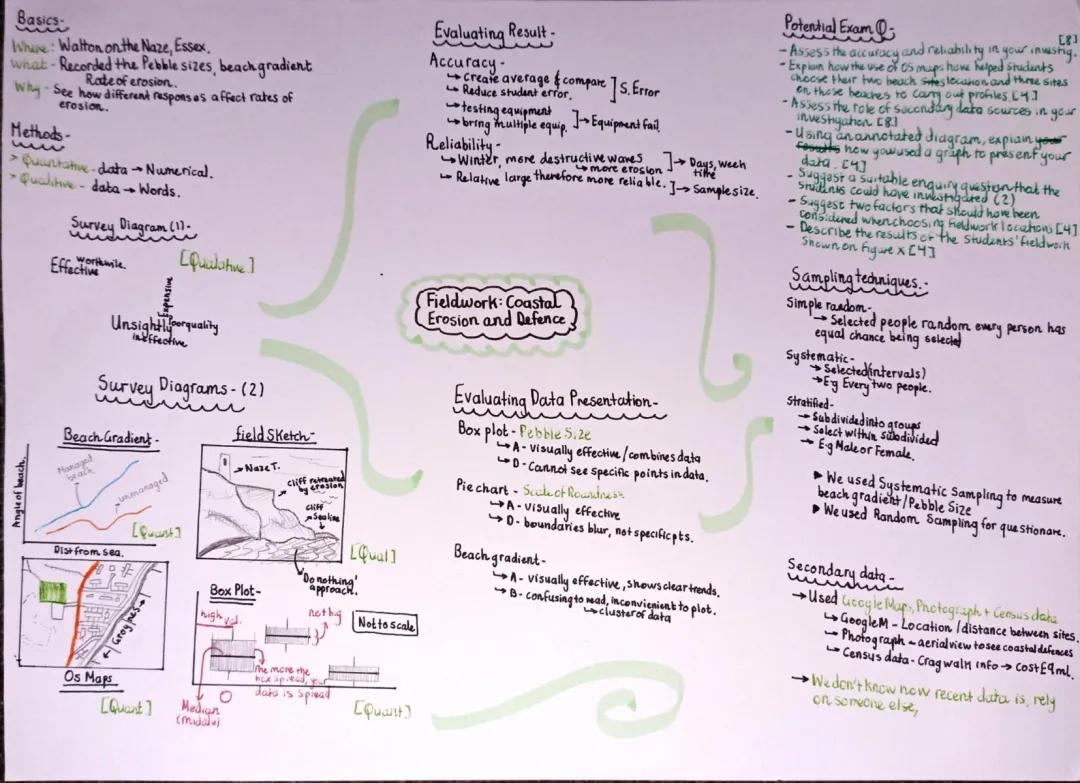 Basics-
Where: Walton on the Naze, Essex.
What - Recorded the Pebble sizes, beach gradient
Rate of erosion.
Why - See how different responses affect rates of
erosion.
Methods-
> Quantative - data → Numerical.
> Qualitive - data → Words.
Survey Diagram (1)-
[Qualative]
Effective
worthwhile.
Expensive
Unsightly
Poor quality
ineffective
Survey Diagrams - (2)
Beach Gradient -
Angle of beach.
Managed
beach
unmanaged
[Quant]
Dist from sea.
field Sketch-
→ Naze T.
Cliff retreated
by erosion
Cliff
Sealine
[Qual]
'Do nothing'
approach.
← Groynes →
Os Maps
[Quant]
Box Plot-
high val.
not big
Not to scale
the more the
box spread, your
data is spread
Median
(middle)
[Quant]
Evaluating Result -
Accuracy -
↳ create average & compare
↳ Reduce student error.
] S. Error
↳ testing equipment
↳ bring multiple equip.
]→ Equipment fail.
Reliability -
↳ Winter, more destructive waves
↳ more erosion
]→ Days, week
time
↳ Relative large therefore more reliable. ]→ Sample size.
Fieldwork: Coastal
Erosion and Defence
Evaluating Data Presentation-
Box plot - Pebble Size
↳ A - visually effective / combines data
↳ D - Cannot see specific points in data.
Pie chart - Scale of Roundness
↳ A - visually effective
↳ D - boundaries blur, not specific pts.
Beach gradient -
↳ A - visually effective, shows clear trends.
↳ B - confusing to read, inconvienient to plot.
↳ cluster of data
Potential Exam Q-
- Assess the accuracy and reliability in your investig. [8]
- Explain how the use of OS maps have helped students
choose their two beach location and three sites
on those beaches to carry out profiles [4]
- Assess the role of secondary data sources in your
investigation [8]
- Using an annotated diagram, explain your
results how you used a graph to present your
data. [4]
- Suggest a suitable enquiry question that the
students could have investigated (2)
- Suggest two factors that should have been
considered when choosing fieldwork locations [4]
- Describe the results of the students' fieldwork
shown on figure x [4]
Sampling techniques.-
Simple random-
→ Selected people random every person has
equal chance being selected
Systematic -
→ Selected (intervals)
→ Eg Every two people.
Stratified-
→ Subdivided into groups
→ Select within subdivided
→ E.g Male or Female.
▶ We used Systematic Sampling to measure
beach gradient / Pebble Size
▶ We used Random Sampling for questionare.
Secondary data -
→ Used Google Maps, Photograph + Census data
↳ Google M - Location / distance between sites.
↳ Photograph - aerial view to see coastal defences
↳ Census data - Crag walk info → cost £9ml.
→ We don't know how recent data is, rely
on someone else,